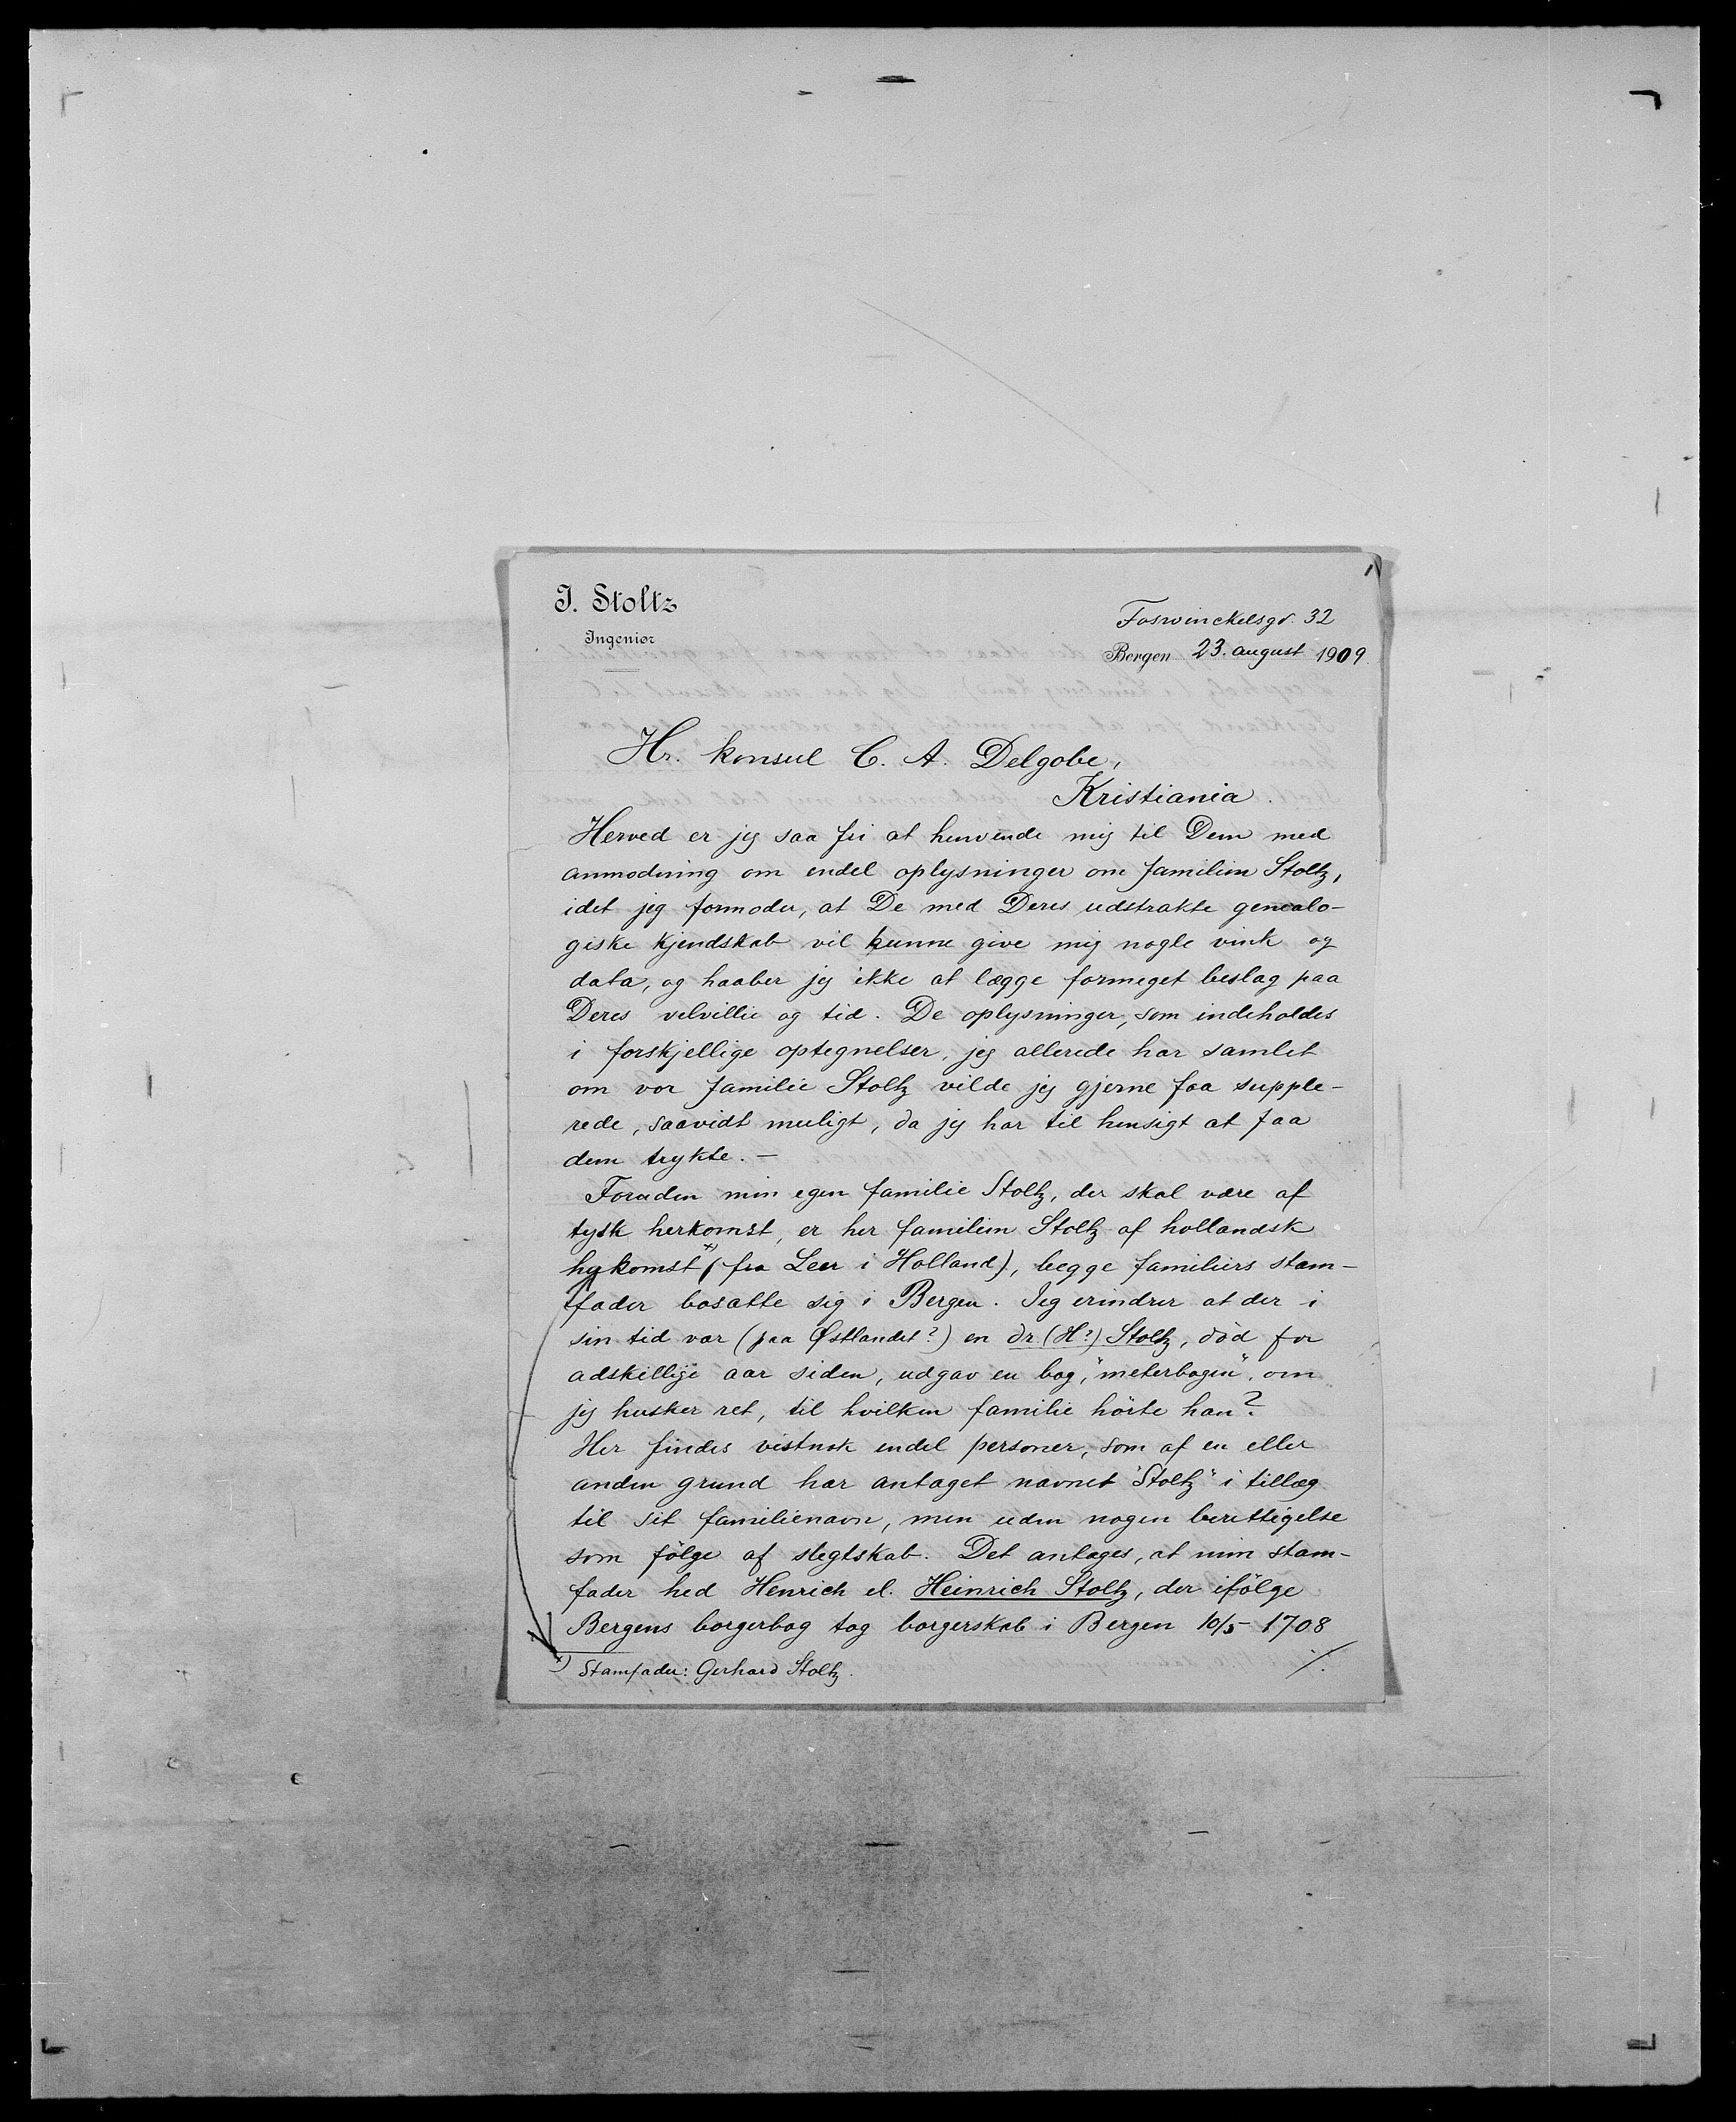 J. Stoltz
Ingeniør
Foswinckelsgr. 32
Bergen 23. august 1909
Hr. konsul C. A. Delgobe,
Kristiania.
Herved er jeg saa fri at henvende mig til Dem med
anmodning om endel oplysninger om familien Stoltz,
idet jeg formoder, at De med Deres udstrakte genealo-
giske kjendskab vil kunne give mig nogle vink og
data, og haaber jeg ikke at lægge formeget beslag paa
Deres velvillie og tid. De oplysninger, som indeholdes
i forskjellige optegnelser, jeg allerede har samlet
om vor familie Stoltz vilde jeg gjerne faa supple-
rede, saavidt muligt, da jeg har til hensigt at faa
dem trykte. —
Foruden min egen familie Stoltz, der skal være af
tysk herkomst, er her familien Stoltz af hollandsk
herkomst x) (fra Leer i Holland), begge familiers stam-
fader bosatte sig i Bergen. Jeg erindrer at der i
sin tid var (paa Østlandet?) en dr. (H?) Stoltz, död for
adskillige aar siden, udgav en bog, "meterbogen", om
jeg husker ret, til hvilken familie hörte han?
Her findes vistnok endel personer, som af en eller
anden grund har antaget navnet "Stoltz" i tillæg
til sit familienavn, men uden nogen berettigelse
som fölge af slegtskab. Det antages, at min stam-
fader hed Henrich el. Heinrich Stoltz, der ifölge
Bergens borgerbog tog borgerskab i Bergen 10/5 – 1708
x) Stamfader: Gerhard Stoltz.
./.